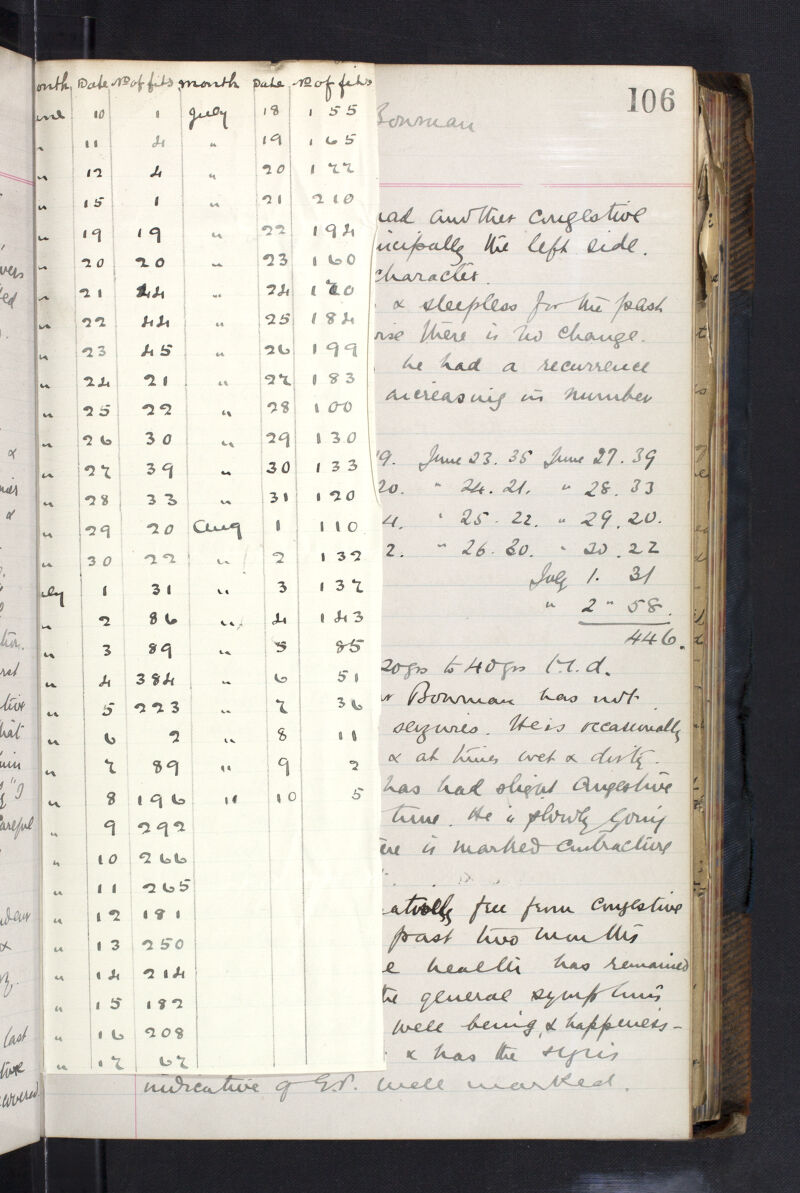 106
Bowman
Month Date No of fits Month Date No of fits
June 10 1 July 18 155
" 11 4 " 19 165
" 12 4 " 20 177
" 15 1 " 21 210
" 19 19 " 22 194
" 20 20 " 23 160
" 21 44 " 24 170
" 22 44 " 25 184
" 23 45 " 26 199
" 24 21 " 27 183
" 25 22 " 28 100
" 26 30 " 29 130
" 27 39 " 30 133
" 28 33 " 31 120
" 29 20 Aug 1 110
" 30 22 " 2 132
July 1 31 " 3 137
" 2 86 " 4 143
" 3 89 " 5 85
" 4 384 " 6 51
" 5 223 " 7 36
" 6 2 " 8 11
" 7 89 " 9 2
" 8 196 " 10 5
" 9 292
" 10 266
" 11 265
" 12 181
" 13 250
" 14 214
" 15 182
" 16 208
" 17 67
had another congestive
the left side.
character.
& sleepless for the past
there is no change.
he had a recurrence
increasing in number
9. June 23. 35 June 27. 39
20. " 24. 21. " 28. 33
4. " 25. 22. " 29. 20.
2. " 26. 30. " 30. 22
July 1. 31
" 2 " 58.
446.
20grs to 40grs t.i.d.
Bowman has not
seizures. He is occasionally
& at times wet & dirty.
has had slight congestive
time. He is slowly going
is marked contracture
free from congestive
past two months
health has remained
the general symptoms
well being, & happiness -
& has the signs
indicative of G.P. well marked.